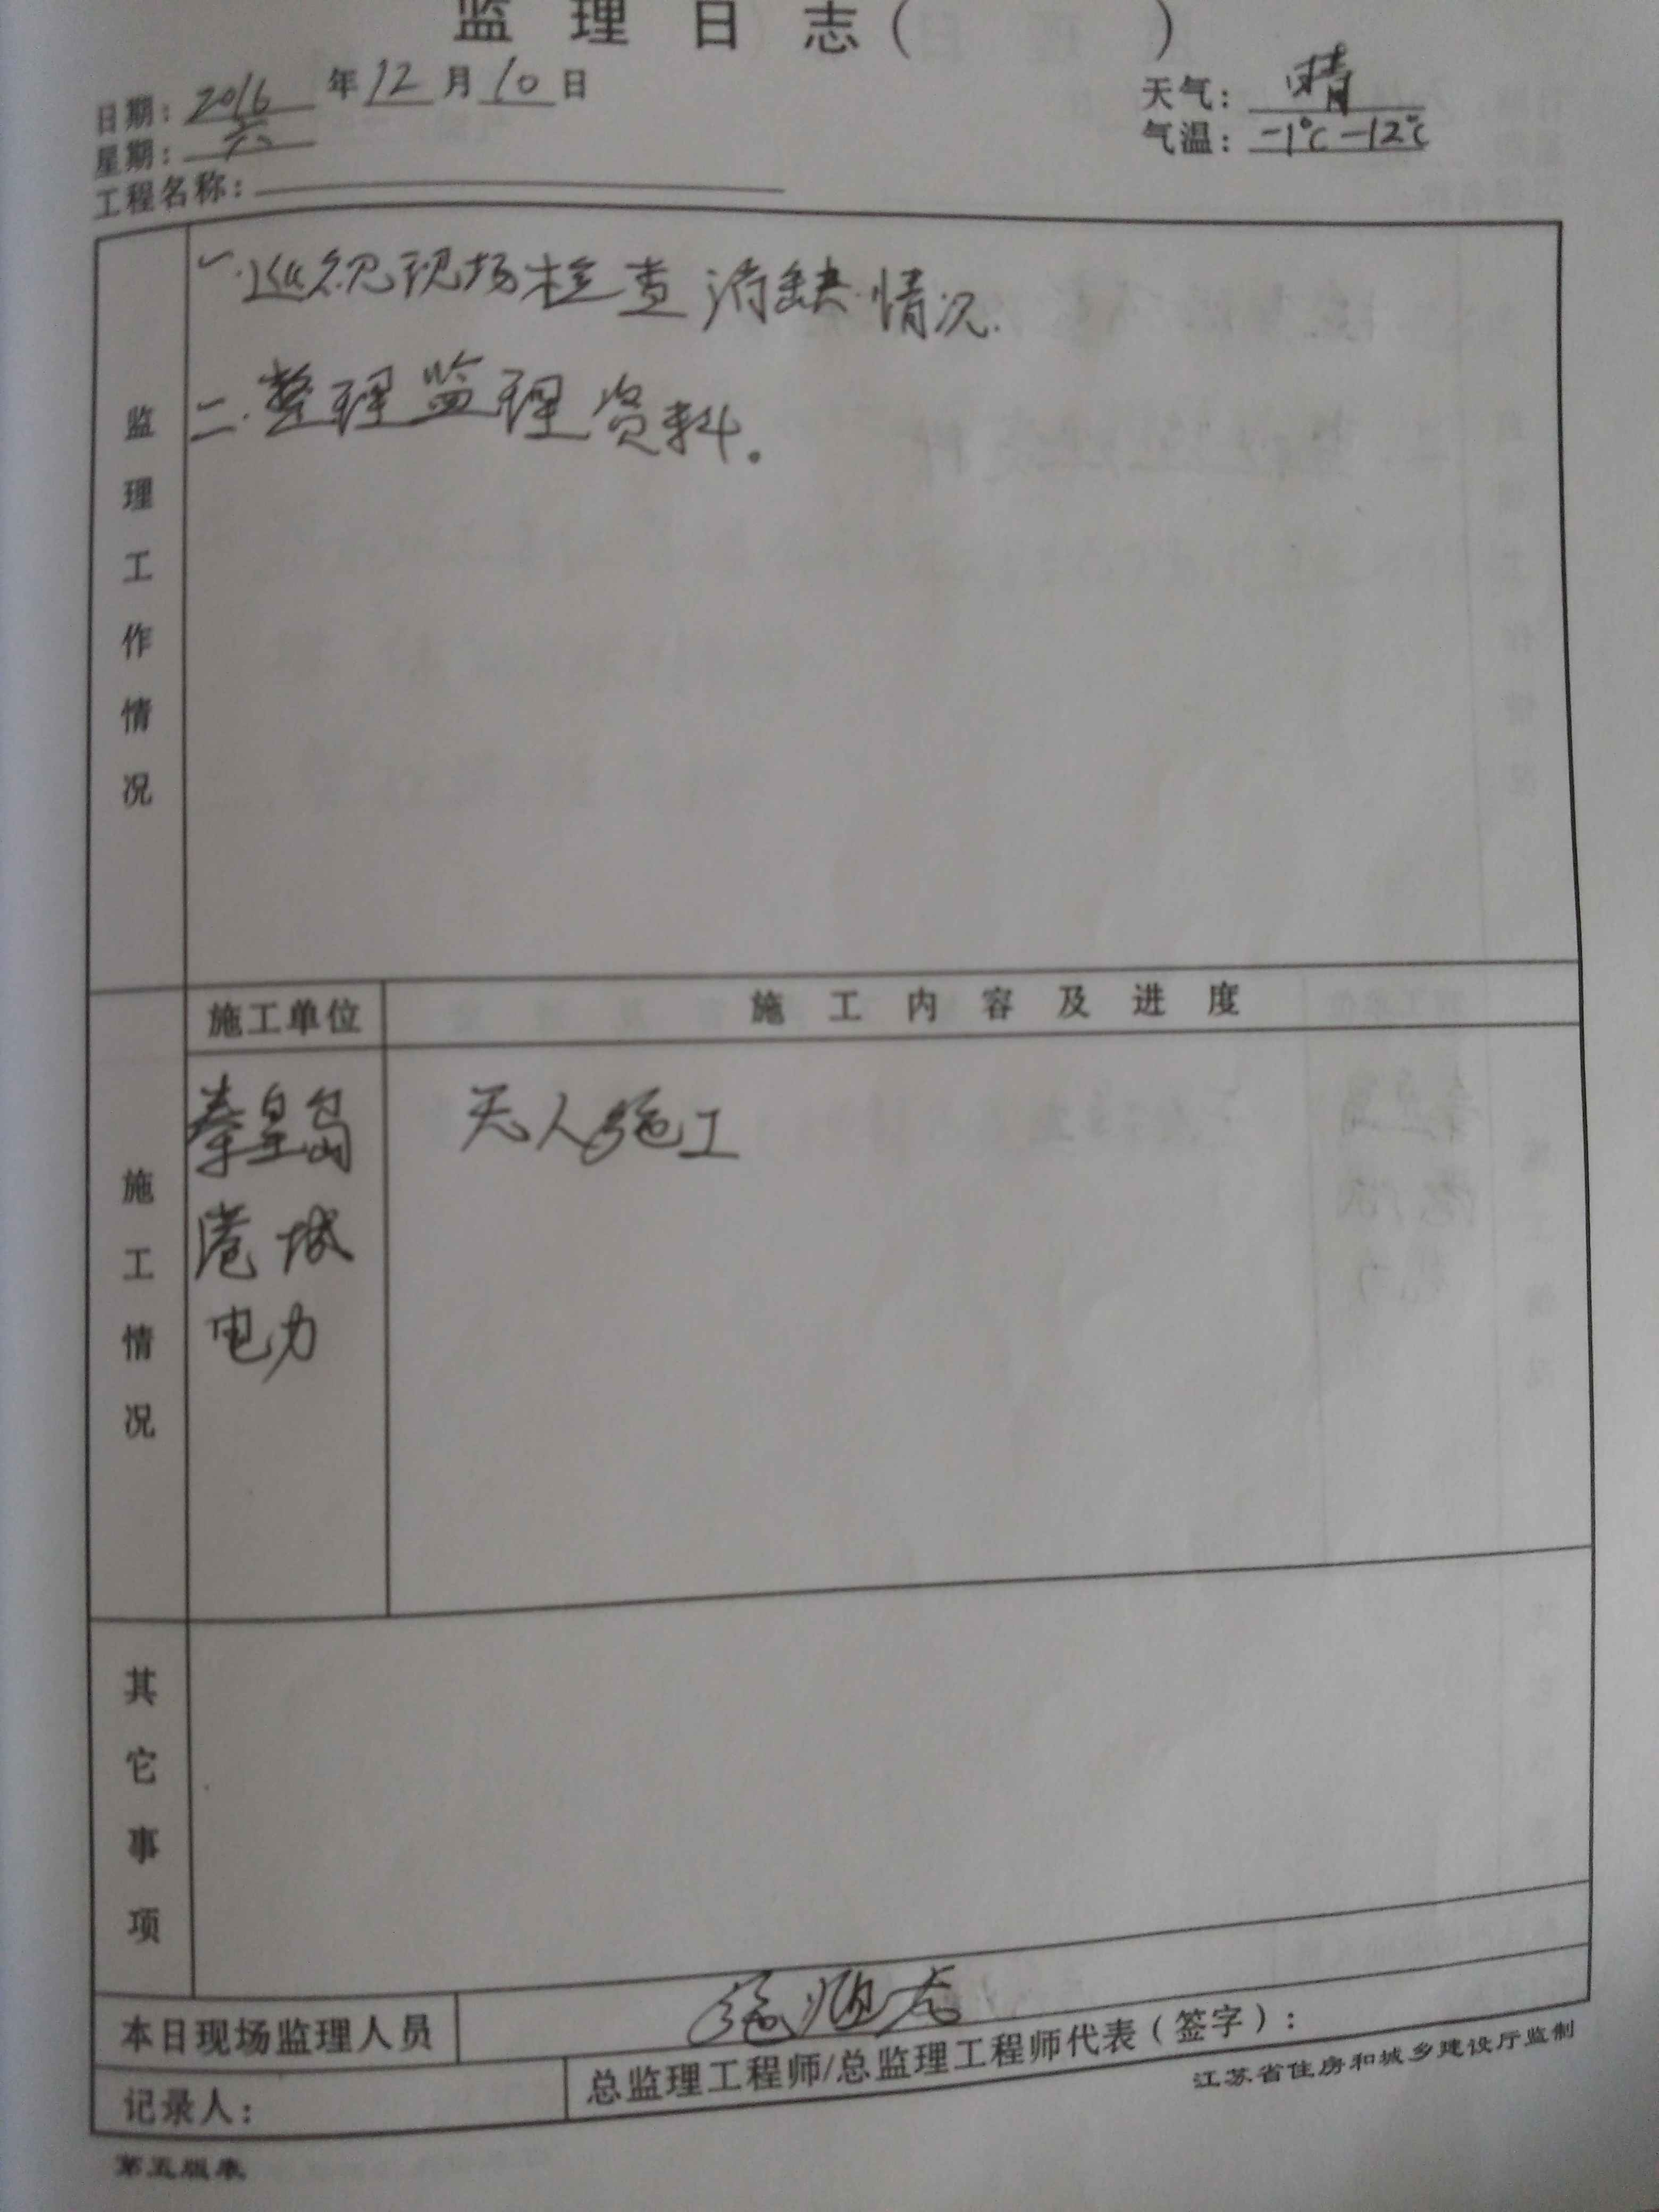 监理日志( )
日期:2016年12月10日
天气:晴
星期:六
气温:-1℃-12℃
工程名称:
监理工作情况
一.巡视现场检查消缺情况.
二.整理监理资料。
施工情况
施工单位
施工内容及进度
秦皇岛
港城
电力
无人施工
其它事项
本日现场监理人员
记录人:
总监理工程师/总监理工程师代表(签字):
江苏省住房和城乡建设厅监制
第五版表